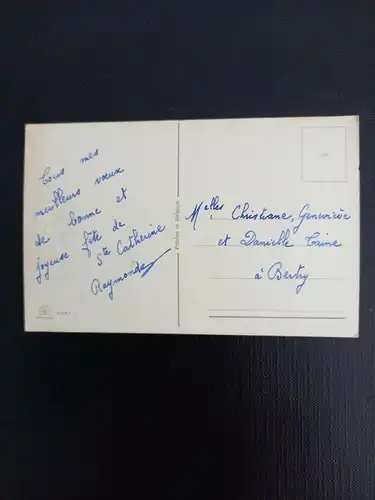 Tous mes
meilleurs vœux
de bonne et
joyeuse fête de
Ste Catherine
Raymonde
Melles Christiane, Geneviève
et Danielle Taine
à Bertry